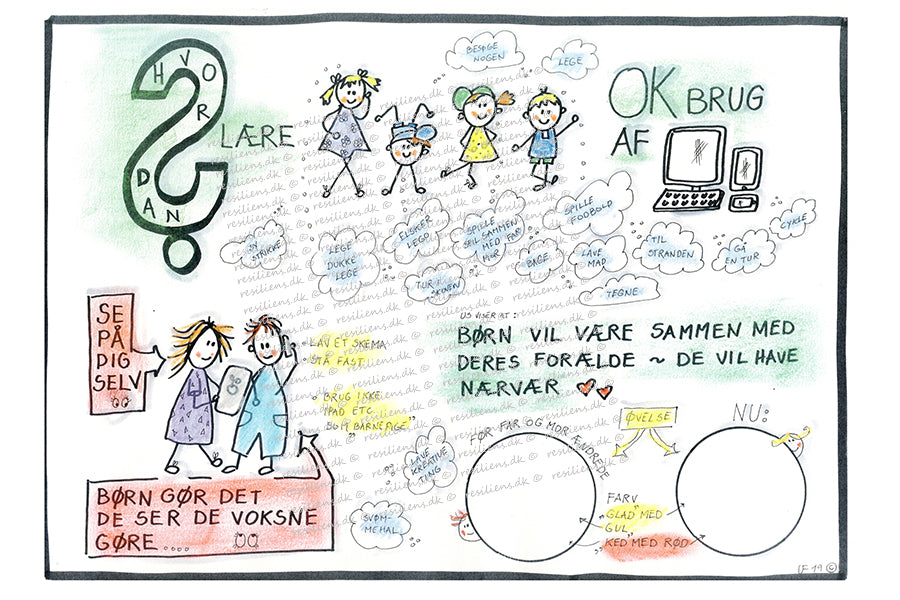 HVORDAN
LÆRE
BESØGE
NOGEN
LEGE
OK BRUG
AF
STRIKKE
LEGE
DUKKE
LEGE
ELSKER
LEGO
SPILLE
SPIL SAMMEN
MED FAR
MOR
SPILLE
FODBOLD
TUR I
SKOVEN
BAGE
LAVE
MAD
TIL
STRANDEN
GÅ
EN TUR
CYKLE
TEGNE
SE
PÅ
DIG
SELV
LAV ET SKEMA
STÅ FAST
BRUG IKKE
IPAD ETC.
SOM "BARNEPIGE"
US VISER AT:
BØRN VIL VÆRE SAMMEN MED
DERES FORÆLDE ~ DE VIL HAVE
NÆRVÆR
BØRN GØR DET
DE SER DE VOKSNE
GØRE....
LAVE
KREATIVE
TING
SVØM-
MEHAL
ØVELSE
FØR FAR OG MOR ÆNDREDE
NU:
FARV
"GLAD" MED
GUL
"KED" MED RØD
LF 19 ©
resiliens.dk ©